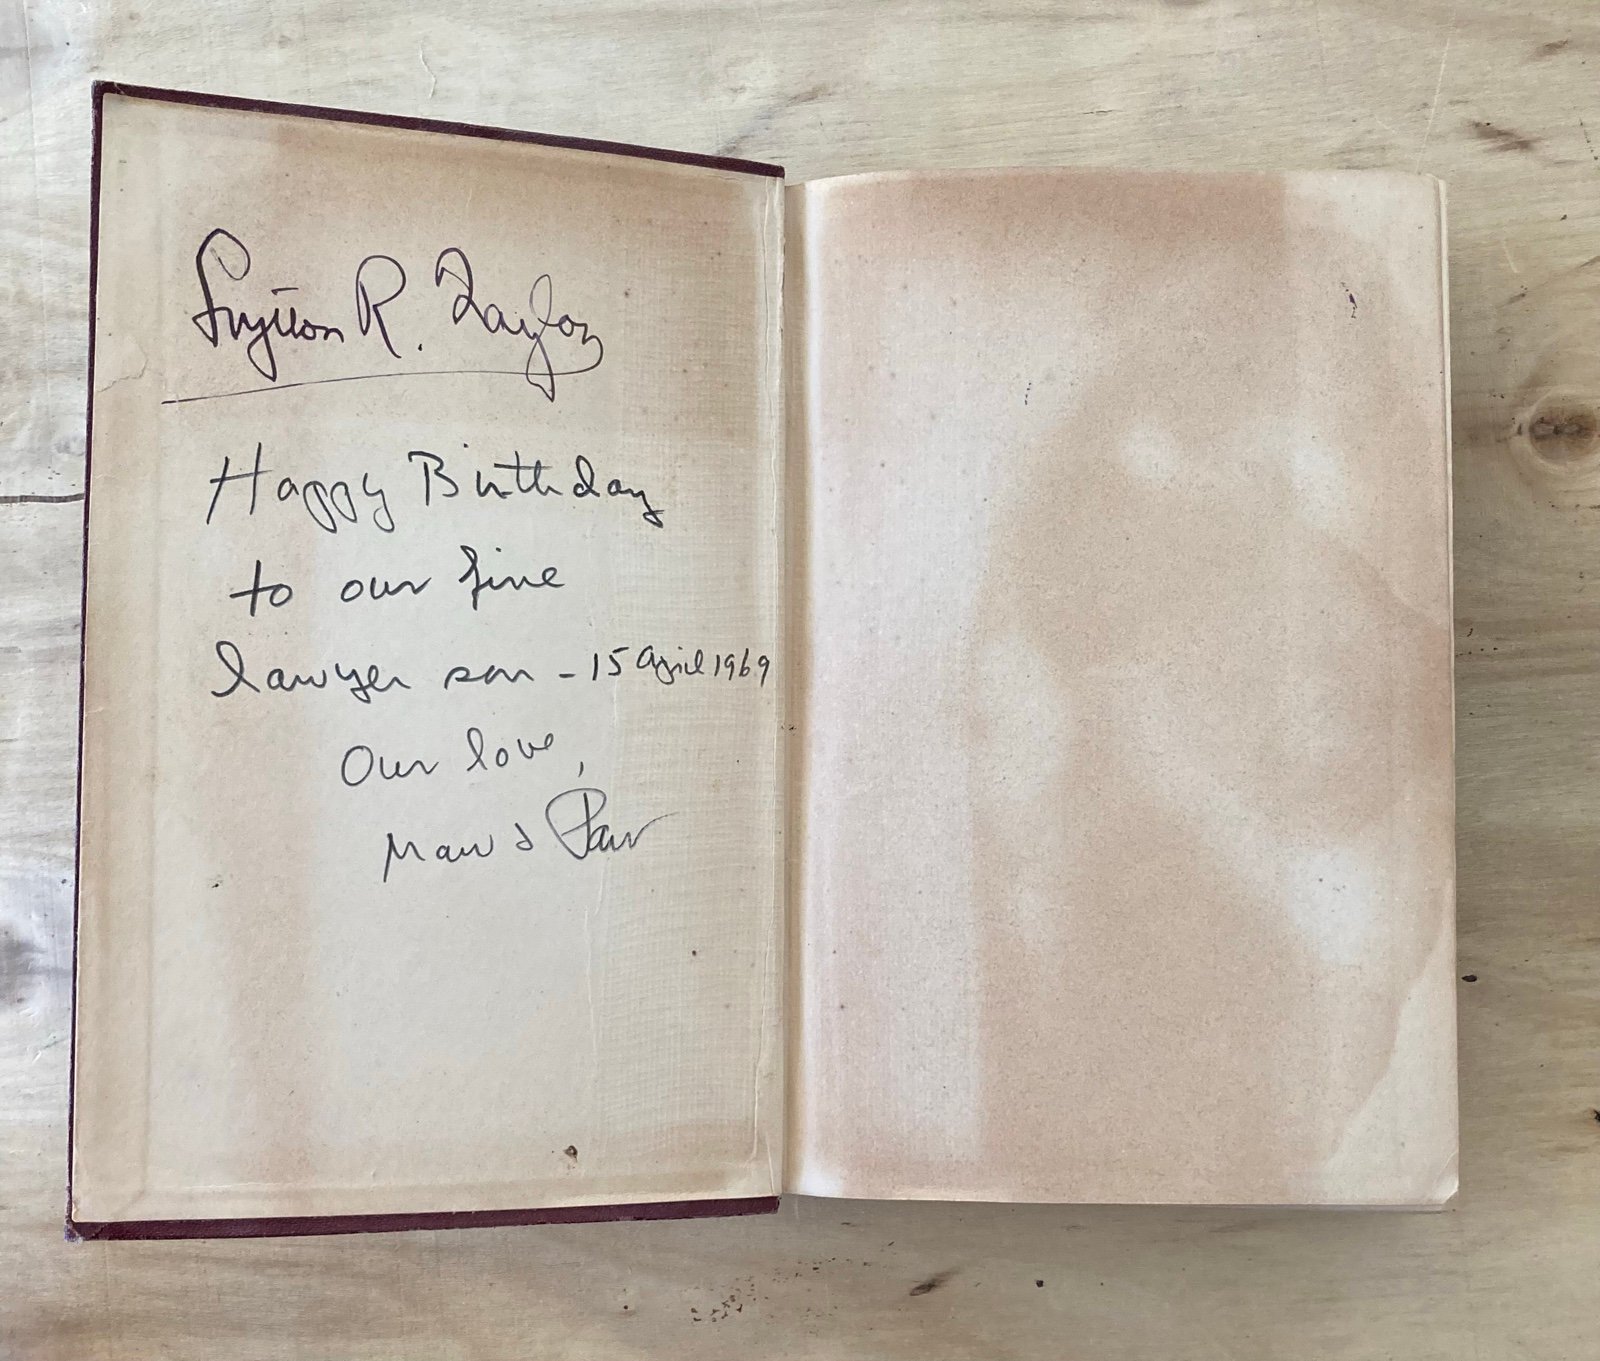 Lytton R. Taylor
Happy Birthday
to our fine
lawyer son - 15 April 1969
Our love,
Maw & Paw